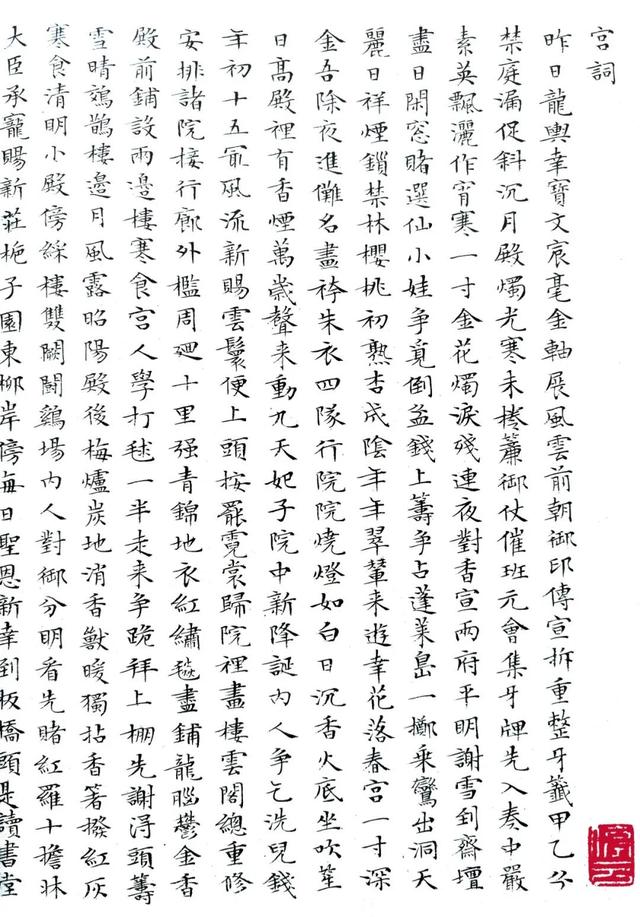 宮詞
昨日龍輿幸寶文宸毫金軸展風雲前朝御印傳宣拆重整牙籤甲乙分
禁庭漏促斜沉月殿燭光寒未捲簾御仗催班元會集牙牌先入奏中嚴
素英飄灑作宵寒一寸金花燭淚殘連夜對香宣兩府平明謝雪到齋壇
盡日閑窓賭選仙小娃争覓倒盆錢上籌争占蓬萊島一擲乘鸞出洞天
麗日祥煙鎖禁林櫻桃初熟杏成陰年年翠輦来遊幸花落春宮一寸深
金吾除夜進儺名畫袴朱衣四隊行院院燒燈如白日沉香火底坐吹笙
日髙殿裡有香煙萬歲聲来動九天妃子院中新降誕内人争乞洗兒錢
年初十五冣風流新賜雲鬟便上頭按罷霓裳歸院裡畫樓雲閣總重修
安排諸院接行廊外檻周廻十里强青錦地衣紅繡毯盡鋪龍腦鬱金香
殿前鋪設兩邊樓寒食宮人學打毬一半走来争跪拜上棚先謝得頭籌
雪晴鳷鵲樓邊月風露昭陽殿後梅爐炭地消香獸暖獨拈香箸撥紅灰
寒食清明小殿傍綵樓雙闕鬬鷄場内人對御分明看先賭紅羅十擔牀
大臣承寵賜新莊梔子園東柳岸傍每日聖恩新幸到板橋頭是讀書堂